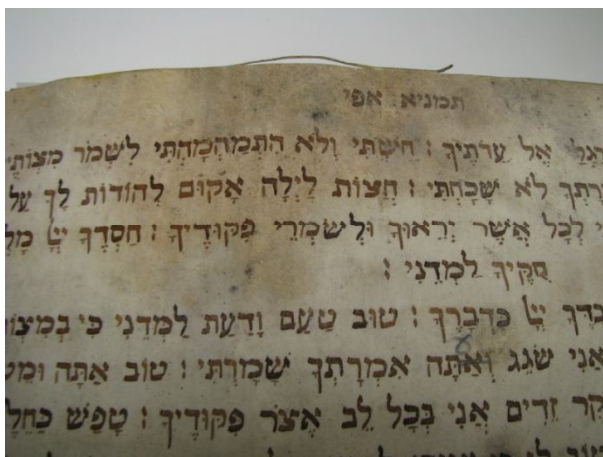 תמניא אפי
רַגְלַי אֶל עֵדֹתֶיךָ : חַשְׁתִּי וְלֹא הִתְמַהְמָהְתִּי לִשְׁמֹר מִצְוֹתֶי
רָתְךָ לֹא שָׁכָחְתִּי : חֲצוֹת לַיְלָה אָקוּם לְהוֹדוֹת לָךְ עַל
י לְכָל אֲשֶׁר יְרֵאוּךָ וּלְשֹׁמְרֵי פִּקּוּדֶיךָ : חַסְדְּךָ יְיָ מָלְ
חֻקֶּיךָ לַמְּדֵנִי :
בְדְּךָ יְיָ כִּדְבָרֶךָ : טוּב טַעַם וָדַעַת לַמְּדֵנִי כִּי בְמִצְוֹ
אֲנִי שֹׁגֵג וְאַתָּה אִמְרָתְךָ שָׁמָרְתִּי : טוֹב אַתָּה וּמֵט
קֶר זֵדִים אֲנִי בְּכָל לֵב אֶצֹּר פִּקּוּדֶיךָ : טָפַשׁ כַּחֵל